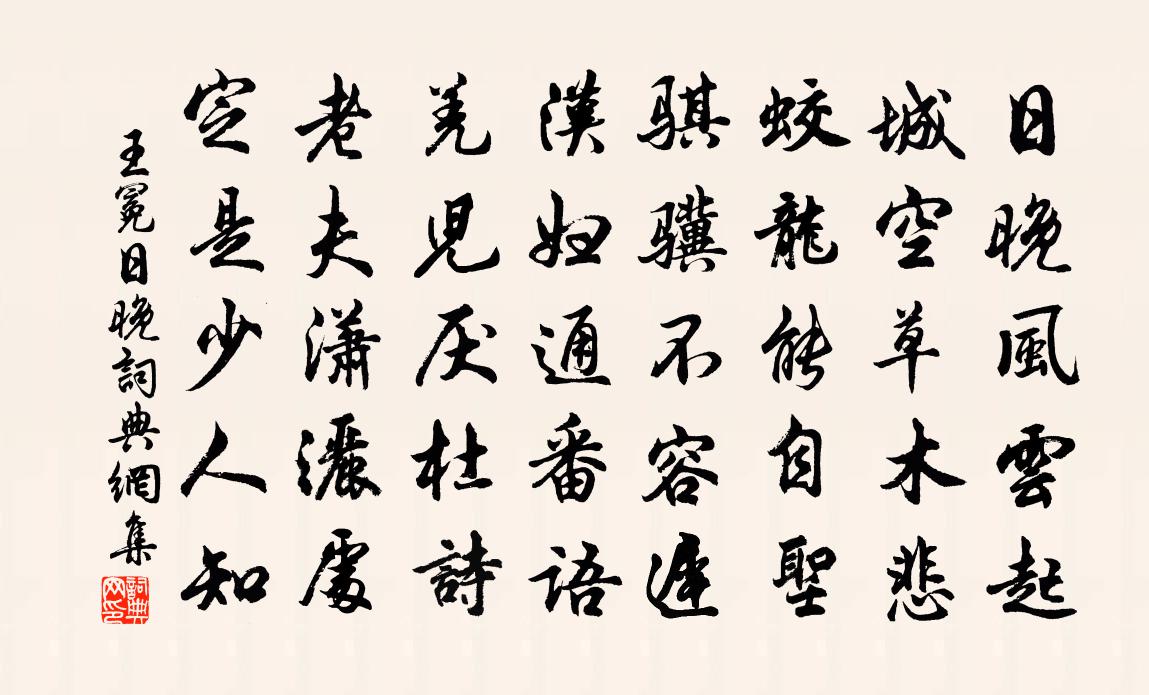 日晚風雲起
城空草木悲
蛟龍能自聖
騏驥不容遲
漢婦通番語
羌兒厌杜詩
老夫瀟灑處
定是少人知
王冕日晚詞典網集
詞典网印